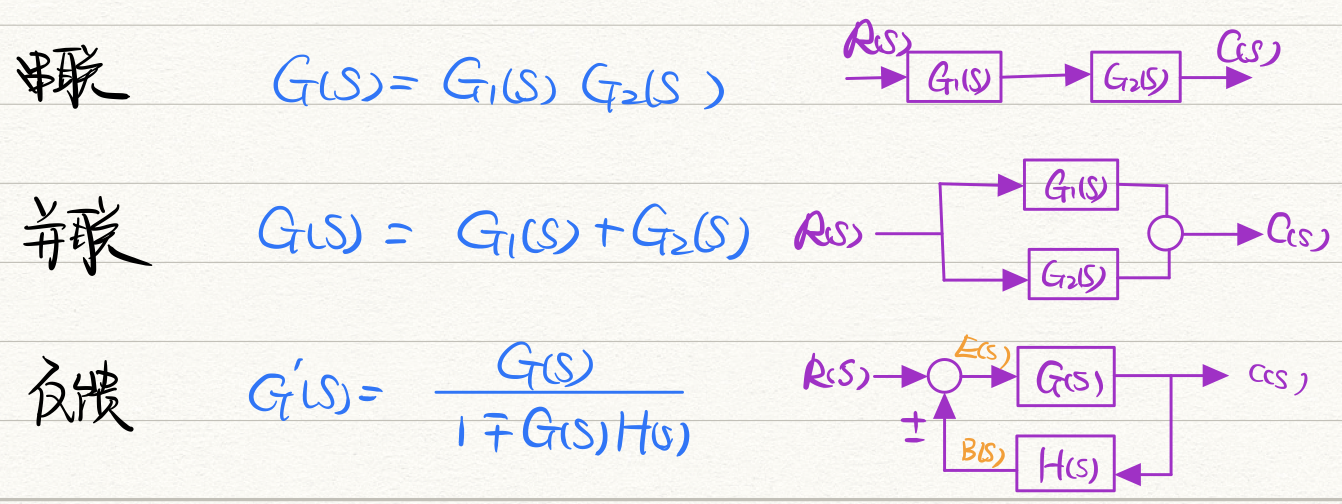 串联 G(S)= G₁(S) G₂(S) R(S) G₁(S) G₂(S) C(S)
并联 G(S) = G₁(S)+G₂(S) R(S) G₁(S) G₂(S) C(S)
反馈 G'(S)= G(S) / 1∓G(S)H(s) R(S) E(S) G(S) C(S)
± B(S) H(S)